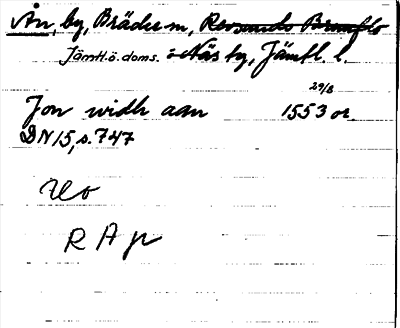 Ån, by, Bräcke sn, Revsunds Brunflo
Jämtl. ö. doms. i Näs ty, Jämtl. l.
29/8
Jon widh aan 1553 or.
DN 15, s. 747
Uo
R A jr